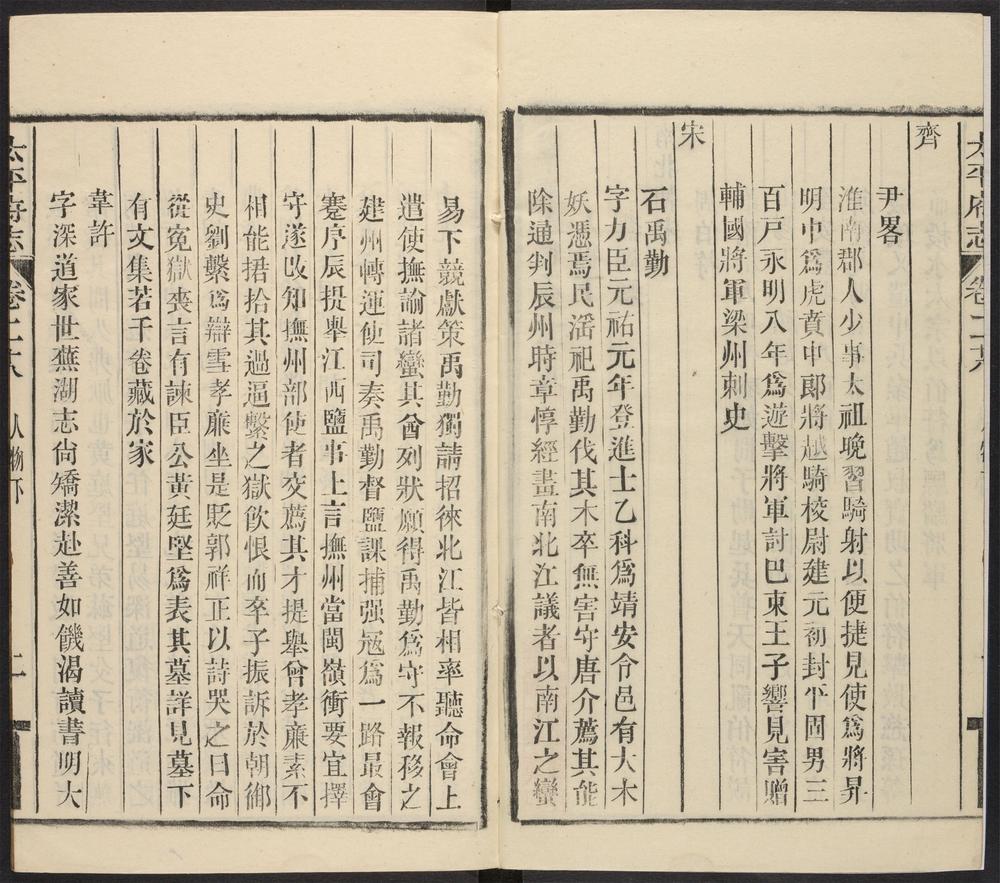 齊
尹畧
淮南郡人少事太祖晚習騎射以便捷見使爲將昇
明中爲虎賁中郎將越騎校尉建元初封平固男三
百戸永明八年爲遊擊將軍討巴東王子響見害贈
輔國將軍梁州刺史
宋
石禹勤
字力臣元祐元年登進士乙科爲靖安令邑有大木
妖憑焉民滛祀禹勤伐其木卒無害守唐介薦其能
除通判辰州時章惇經畫南北江議者以南江之蠻
易下競獻策禹勤獨請招徠北江皆相率聽命會上
遣使撫諭諸蠻其酋列狀願得禹勤爲守不報移之
建州轉運使司奏禹勤督鹽課捕强冦爲一路最會
蹇序辰提舉江西鹽事上言撫州當閩嶺衝要宜擇
守遂改知撫州部使者交薦其才提舉曾孝廉素不
相能捃拾其過逼繫之獄飲恨而卒子振訴於朝御
史劉繫爲辯雪孝廉坐是貶郭祥正以詩哭之曰命
從寃獄喪言有諫臣公黃廷堅爲表其墓詳見墓下
有文集若干卷藏於家
韋許
字深道家世蕪湖志尙矯潔赴善如饑渴讀書明大
太平府志 卷二十八 人物下